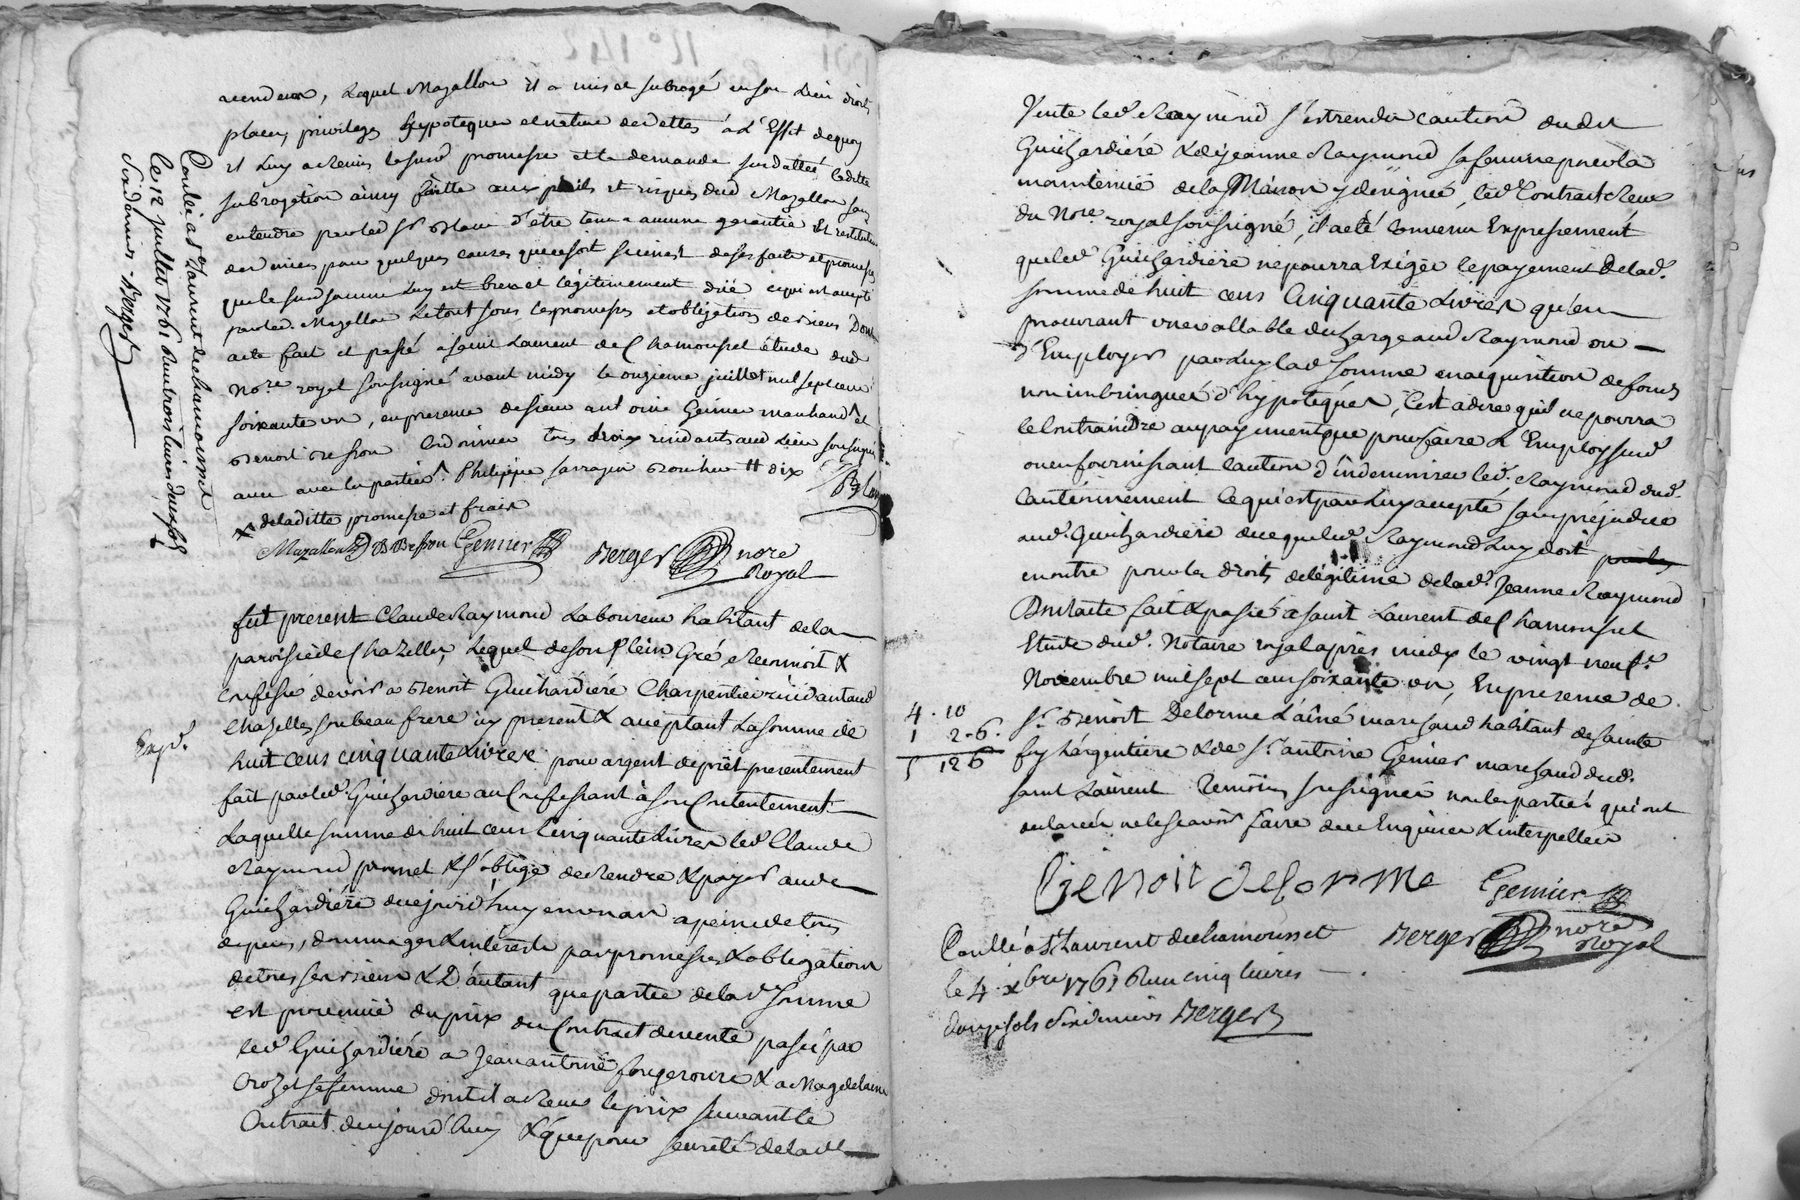 vendeur, Lequel Mazallon il a mis et subrogé en son Lieu droits
places, privileges hypoteques et nature de dettes à L'Effet de quoy
il Luy a remis la susd promesse et la demande susdattée, laditte
subrogation ainsy faitte aux perils et risques dud Mazallon sans
entendre par led Sr d'être tenu a aucune garantie et restitution
de deniers pour quelques causes que ce soit sinon de ses faits et promesses
que la susd somme Luy est bien et légitimement düe ce qui est accepté
par led. Mazallon Le tout sous les promesses et obligations de biens Dont
acte fait et passé a saint Laurent de Chamousset étude dud
Nore royal soussigné avant midy le onzieme juillet mil sept cent
soixante un, en presence de sieur antoine Genier marchand et
Benoit Besson Cordonnier tous deux residants aud Lieu soussignés
avec avec les parties. Philippe sarrazin dix
x de laditte promesse et frais
Mazallon B Besson Genier Berger nore
Royal
Conllé a St Laurent de chamousset
le 12 juillet 1761 Reçu trois livres douze sols
six deniers. Berger
fut present Claude Raymond Laboureur habitant de la
paroisse de Chazelles, Lequel de son plein Gré Reconnoit &
confesse devoir a Benoit Guichardiére Charpentier résidant aud
Chazelles son beau frere icy present & acceptant La somme de
huit cens cinquante Livres pour argent de prêt presentement
fait par led. Guichardiere au Confessant à son Contentement
Laquelle somme de huit cens Cinquante Livres led. Claude
Raymond promet & s'oblige de Rendre & payer aud.
Guichardiére de cejourd'huy en un an a peine de tous
depens, dommages & interests par promesses & obligations
de tous ses biens & D'autant que partie de lad. somme
est provenüe du prix du Contract de vente passé par
led. Guichardiére a Jean antoine fougerouse & a Magdelaine
Crozet sa femme dont il a Reçu le prix suivant le
Contract de cejourd'huy & que pour seureté de lad.
Exp.
Vente led. Raymond s'est rendu caution dudit
Guichardiére & de jeanne Raymond sa femme pour la
maintenüe de la Maison y designée, led. Contract Reçu
du Nore royal soussigné, il a été Convenu Expressement
que led. Guichardiere ne pourra Exiger le payement de lad.
somme de huit cens Cinquante Livres qu'en
procurant une vallable decharge aud Raymond ou
d'Employer par Luy lad somme en acquisition de fonds
non imbringués d'hypoteques, C'est a dire qu'il ne pourra
le Contraindre au payement que pour faire L'Employ susd
ou en fournissant Caution d'indemniser led. Raymond dud.
Cautionnement ce qui est par Luy accepté sans préjudice
aud. Guichardiere de ce que led. Raymond Luy doit
en outre pour les droits de légitime de lad. Jeanne Raymond
Dont acte fait & passé a saint Laurent de Chamousset
Etude dud. Notaire royal après midy le vingt neuf
Novembre mil sept cens soixante un, En presence de
4 . 10
1 2 . 6 .
5 12 6
Sr. Benoit Delorme L'aîné marchand habitant de sainte
foy Largentiere & de Sr antoine Genier marchand dud.
saint Laurent Temoins soussignés non les parties qui ont
declarée ne le scavoir faire de ce Enquises & interpellées
Benoit delorme Genier
Berger nore
Royal
Conllé a St Laurent de chamousset
le 4 xbre 1761 Reçu cinq livres
douze sols six deniers Berger